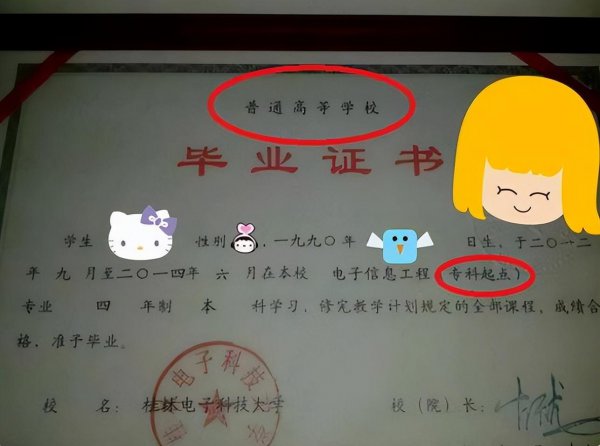 普通高等学校
毕业证书
学生 性别 ,一九九〇年 日生,于二〇一二
年 九 月至二〇一四年 六 月在本校 电子信息工程 专科起点)
专业 四 年制 本 科学习,修完教学计划规定的全部课程,成绩合
格,准予毕业。
校 名: 桂林电子科技大学 校(院)长:
电子科技